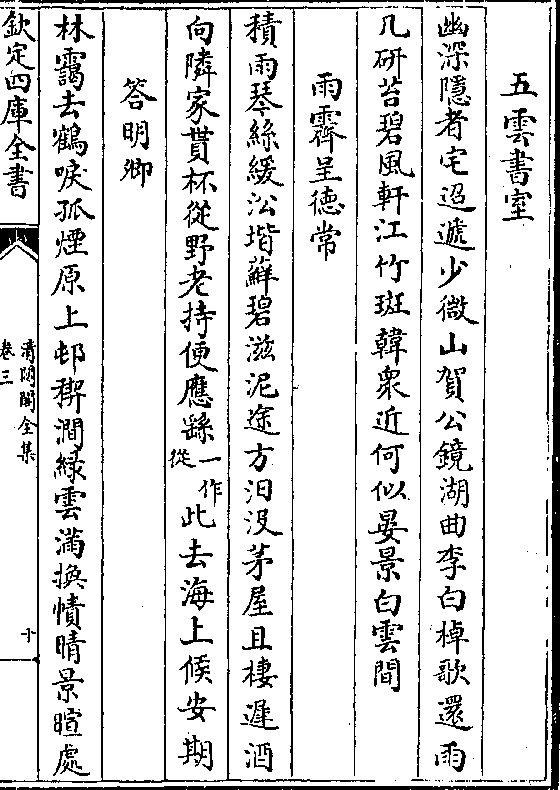 五雲書室
幽深隱者宅迢遞少微山賀公鏡湖曲李白棹歌還雨
几研苔碧風軒江竹斑韓衆近何似晏景白雲間
雨霽呈徳常
積雨琴絲緩沿堦蘚碧滋泥途方汩没茅屋且棲遲酒
向隣家貰杯從野老持便應繇一作從此去海上候安期
答明卿
林靄去鶴唳孤煙原上邨稧澗緑雲滿換幘晴景暄處
欽定四庫全書
清閟閣全集
卷三
十